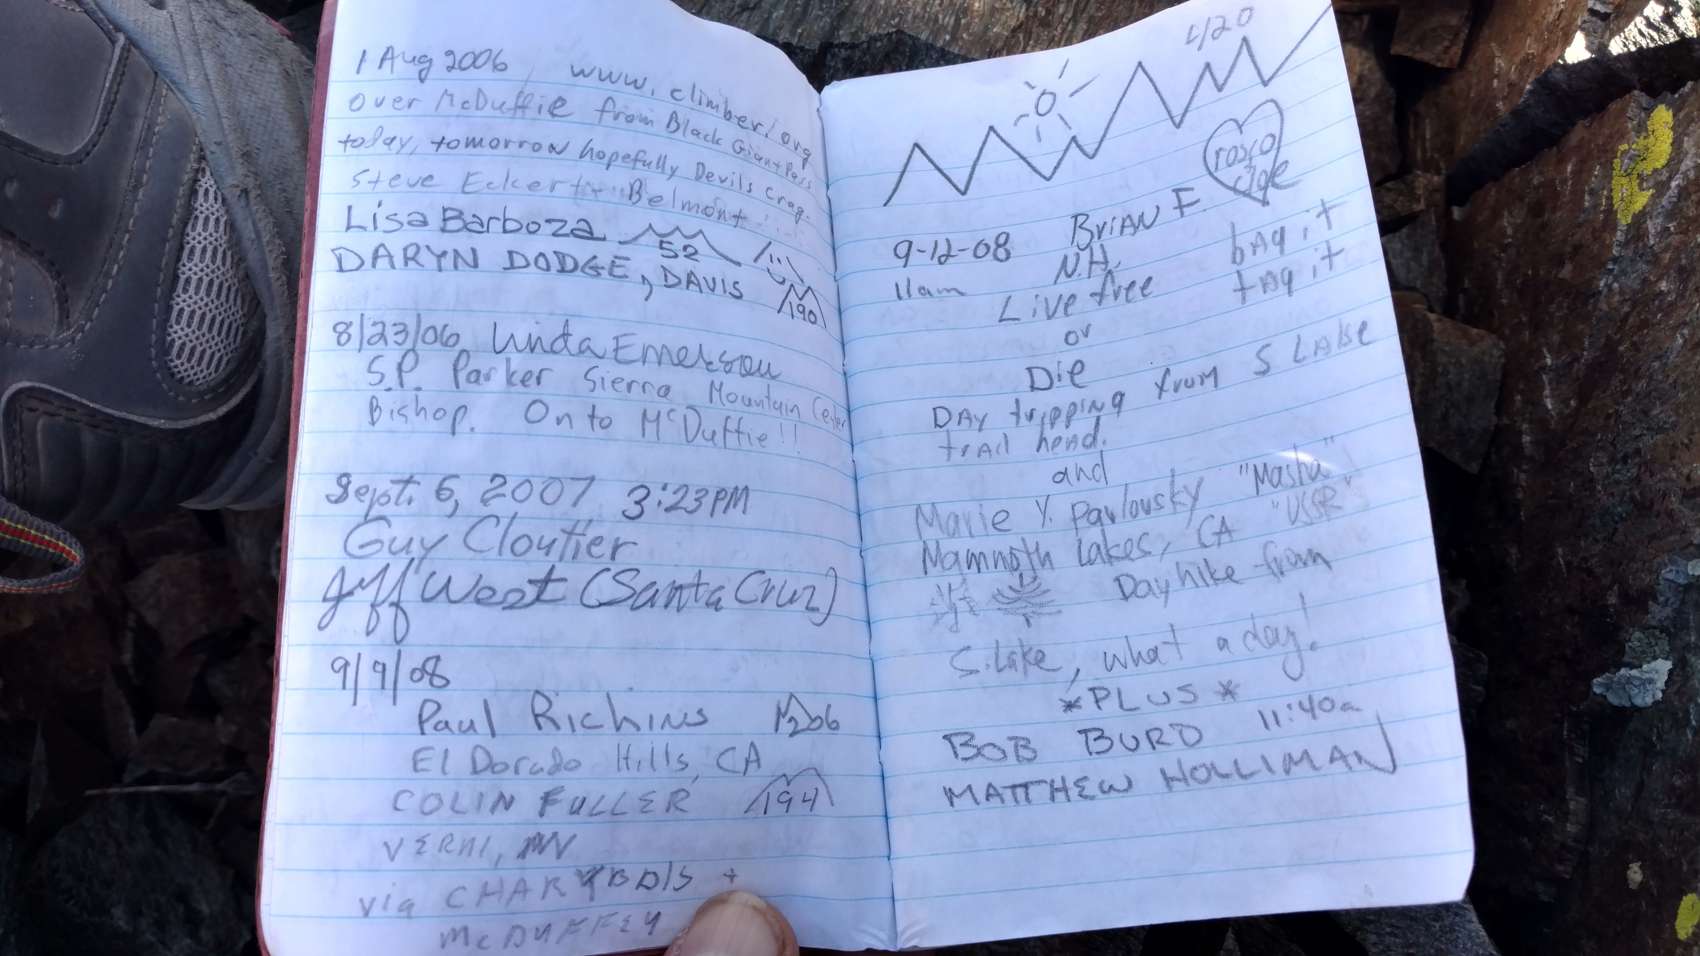 1 Aug 2006, www.climber.org
over McDuffie from Black Giant Pass
today, tomorrow hopefully Devils Crag.
Steve Eckert Belmont
Lisa Barboza 52
DARYN DODGE, DAVIS 190
8/23/06 Linda Emerson
S.P. Parker Sierra Mountain Center
Bishop. On to McDuffie!!
Sept. 6, 2007 3:23PM
Guy Cloutier
Jeff West (Santa Cruz)
9/9/08
Paul Richins 206
El Dorado Hills, CA
COLIN FULLER 194
VERDI, NV
via CHARYBDIS +
McDUFFEY
L/20
rosco
Brian F.
9-12-08
N.H.
bag it
11am
Live free
tag it
or
Die
Day tripping from S Lake
trail head.
and
Marie Y. Pavlovsky "Masha"!
Mammoth Lakes, CA "USSR"
Day hike from
S. Lake, what a day!
*PLUS*
BOB BURD 11:40a
MATTHEW HOLLIMAN